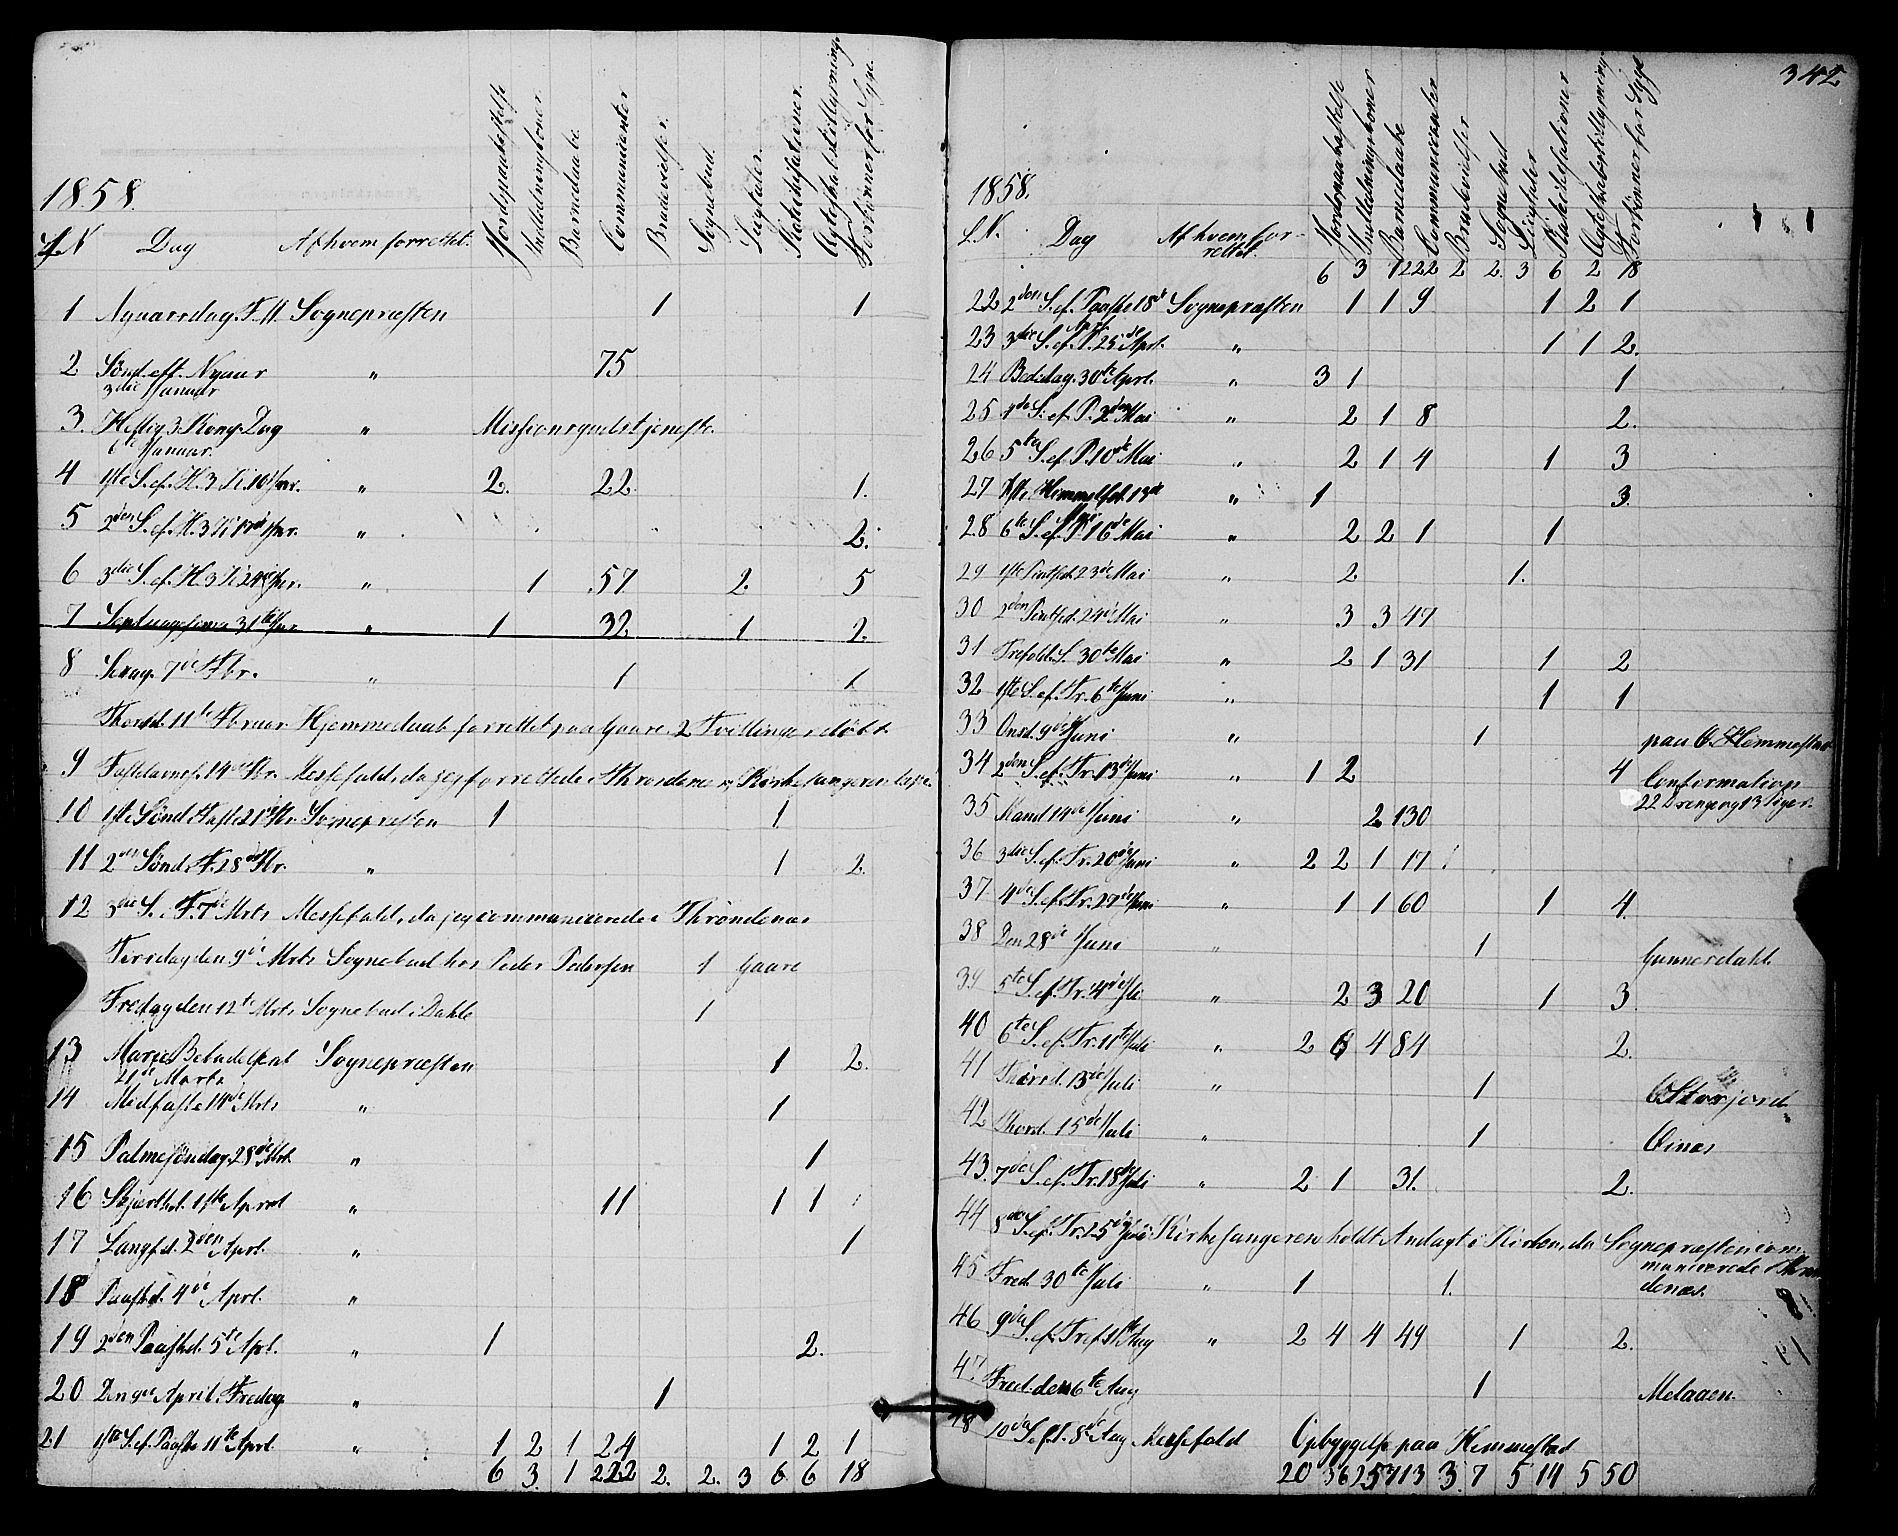 1858.
L.N Dag Af hvem forrettet. Jordspaakastelse Indledningkoner. Barnedaabe. Communicanter Brudevielser. Sognebud. Liigtaler. Skattskifationer. Ægteskabstillysning. Forbønner for Syge.
1 Nyaarsdag. F. M. Sognepræsten 1 1
2 Sönd. eft. Nyaar " 75
3die Januar
3. Hellig 3 Kong. Dag " Missionsgudstjeneste.
6te Januar.
4 1ste S. ef. H. 3 K. 10de Jnr. " 2. 22. 1.
5 2den S. ef. H. 3 K. 17de Jnr. " 2.
6 3die S. ef. H. 3 K. 24de Jnr. " 1 57 2. 5
7 Septuagesima 31te Jnr " 1 32 1 2.
8 Sexag. 7de Fbr. " 1 1
Thorsd. 11te Februar. Hjemmedaab forrettet paa Gaare. 2 Tvillinger döbt
9 Fastelavns. 14de Fbr. Messefald, da jeg forrettede i Throndenæs, Kirkesangeren læste.
10 1ste Sönd. i Faste 21de Fbr. Sognepræsten 1 1.
11 2den Sönd. i F. 28de Fbr. " 1 2.
12 3die S. i F. 7de Mrts Messefald, da jeg communicerede i Throndenæs
Tirsdag den 9de Mrts Sognebud hos Peder Pedersen 1 Gaare
Fredag den 12te Mrts Sognebud i Dahle 1
13 Mariæ Bebudelsest Sognepræsten 1 2.
21de Marts
14 Midfaste 14de Mrts " 1
15 Palmesöndag. 28de Mrt. " 1
16 Skjærthd. 1ste Aprl " 11 1 1
17 Langfd. 2den Aprl. " 1
18 Paaskd. 4de Aprl. "
19 2den Paaskd. 5te Apl. " 1 2.
20 Den 9de April. Fredag " 1
21 1ste S. ef. Paaske 11te Aprl. " 1 2 1 24 1 2 1
6 3. 1 222 2. 2. 3 6 6 18
342
1858.
L.N. Dag Af hvem for-
rettet. Jordspaakastelse Indledningkoner Barnedaabe Communicanter Brudevielser Sognebud Liigtaler Ægteskabstillysning Forbønner for Syge
6 3 1 222 2 2. 3 6 2 18
22 2den S. ef. Paaske 18de Sognepræsten 1 1 9 1 2 1
Aprl
23 3die S. ef. P. 25de Aprl. " 1 1 2.
24 Bededag. 30te Aprl. " 3 1 1
25 4de S. ef. P. 2den Mai " 2 1 8 2.
26 5te S. ef. P. 10de Mai " 2 1 4 1 3
27 Kr. Himmelfd. 13de " 1 3.
Mai
28 6te S. ef. P. 16de Mai " 2 2 1 1
29 1ste Pintsd. 23de Mai " 2. 1.
30 2den Pintsd. 24de Mai " 3 3 47
31 Trefold. S. 30te Mai " 2 1 31 1 2
32 1ste S. ef. Tr. 6te Juni " 1 1
33 Onsd. 9de Juni " 1 paa Ø. Hemmestad
34 2den S. ef. Tr. 13de Juni " 1 2 4 Conformation
22 Drenge og 13 Piger.
35 Mand 14de Juni " 2 130
36 3die S. ef. Tr. 20de Juni " 2 2 1 17
37 4de S. ef. Tr. 27de Juni " 1 1 60 1 4.
38 Den 28de Juni " 1 Gunnesdahl.
39 5te S. ef. Tr. 4de Juli " 2 3 20 1 3.
40 6te S. ef. Tr. 11te Juli " 2 6 4 84 2.
41 Tirsd. 13de Juli " 1 Ø. Storjord.
42 Thorsd. 15de Juli " 1 Øines
43. 7de S. ef. Tr. 18de Juli " 2 1 31. 2.
44 8de S. ef. Tr. 25de Juli. Kirkesangeren holdt Andagt i Kirken, da Sognepræsten com-
municerede i Thron-
45 Fred. 30te Juli " 1 1. denæs.
46 9de S. ef. Tref. 1ste Aug " 2 4 4 49 1 2.
47. Fred. den 6te Aug 1 Melaaen.
48 10de S. ef. T. 8de Aug Messefald Opbyggelse paa Hemmestad
20 36 25 713 3. 7 5 14 5 50